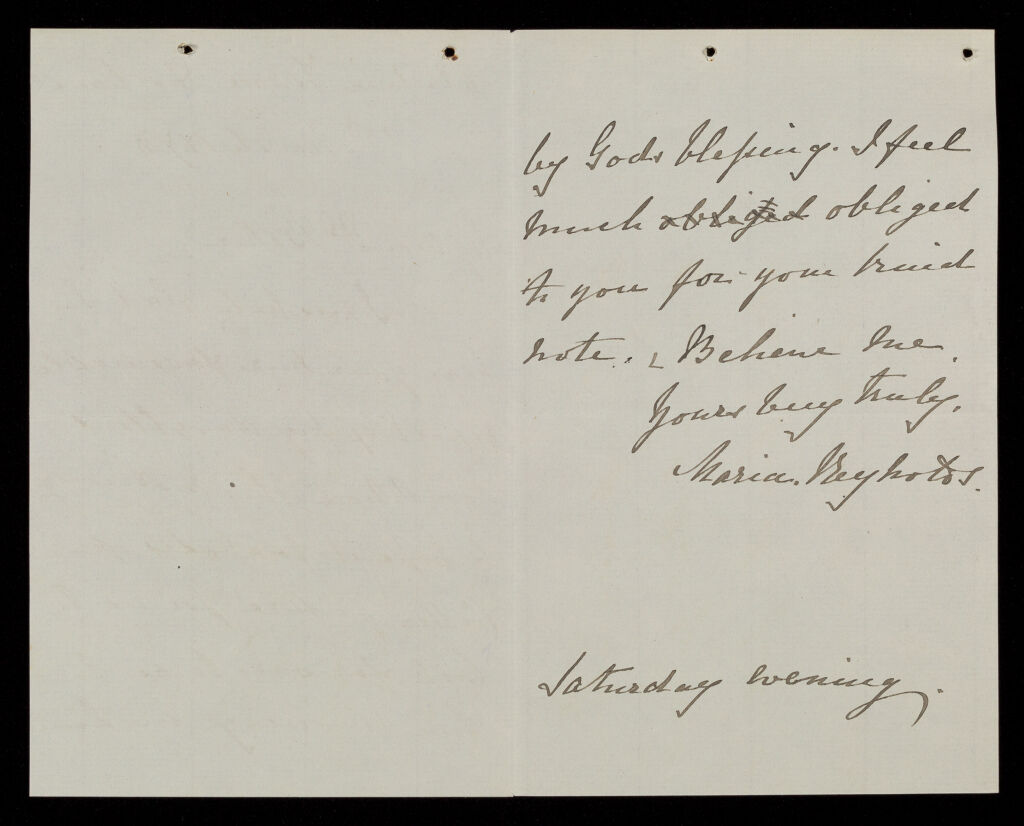 by Gods blessing. I feel
much obliged obliged
to you for your kind
note. Believe me.
Yours very truly.
Maria. Reynolds.
Saturday evening.